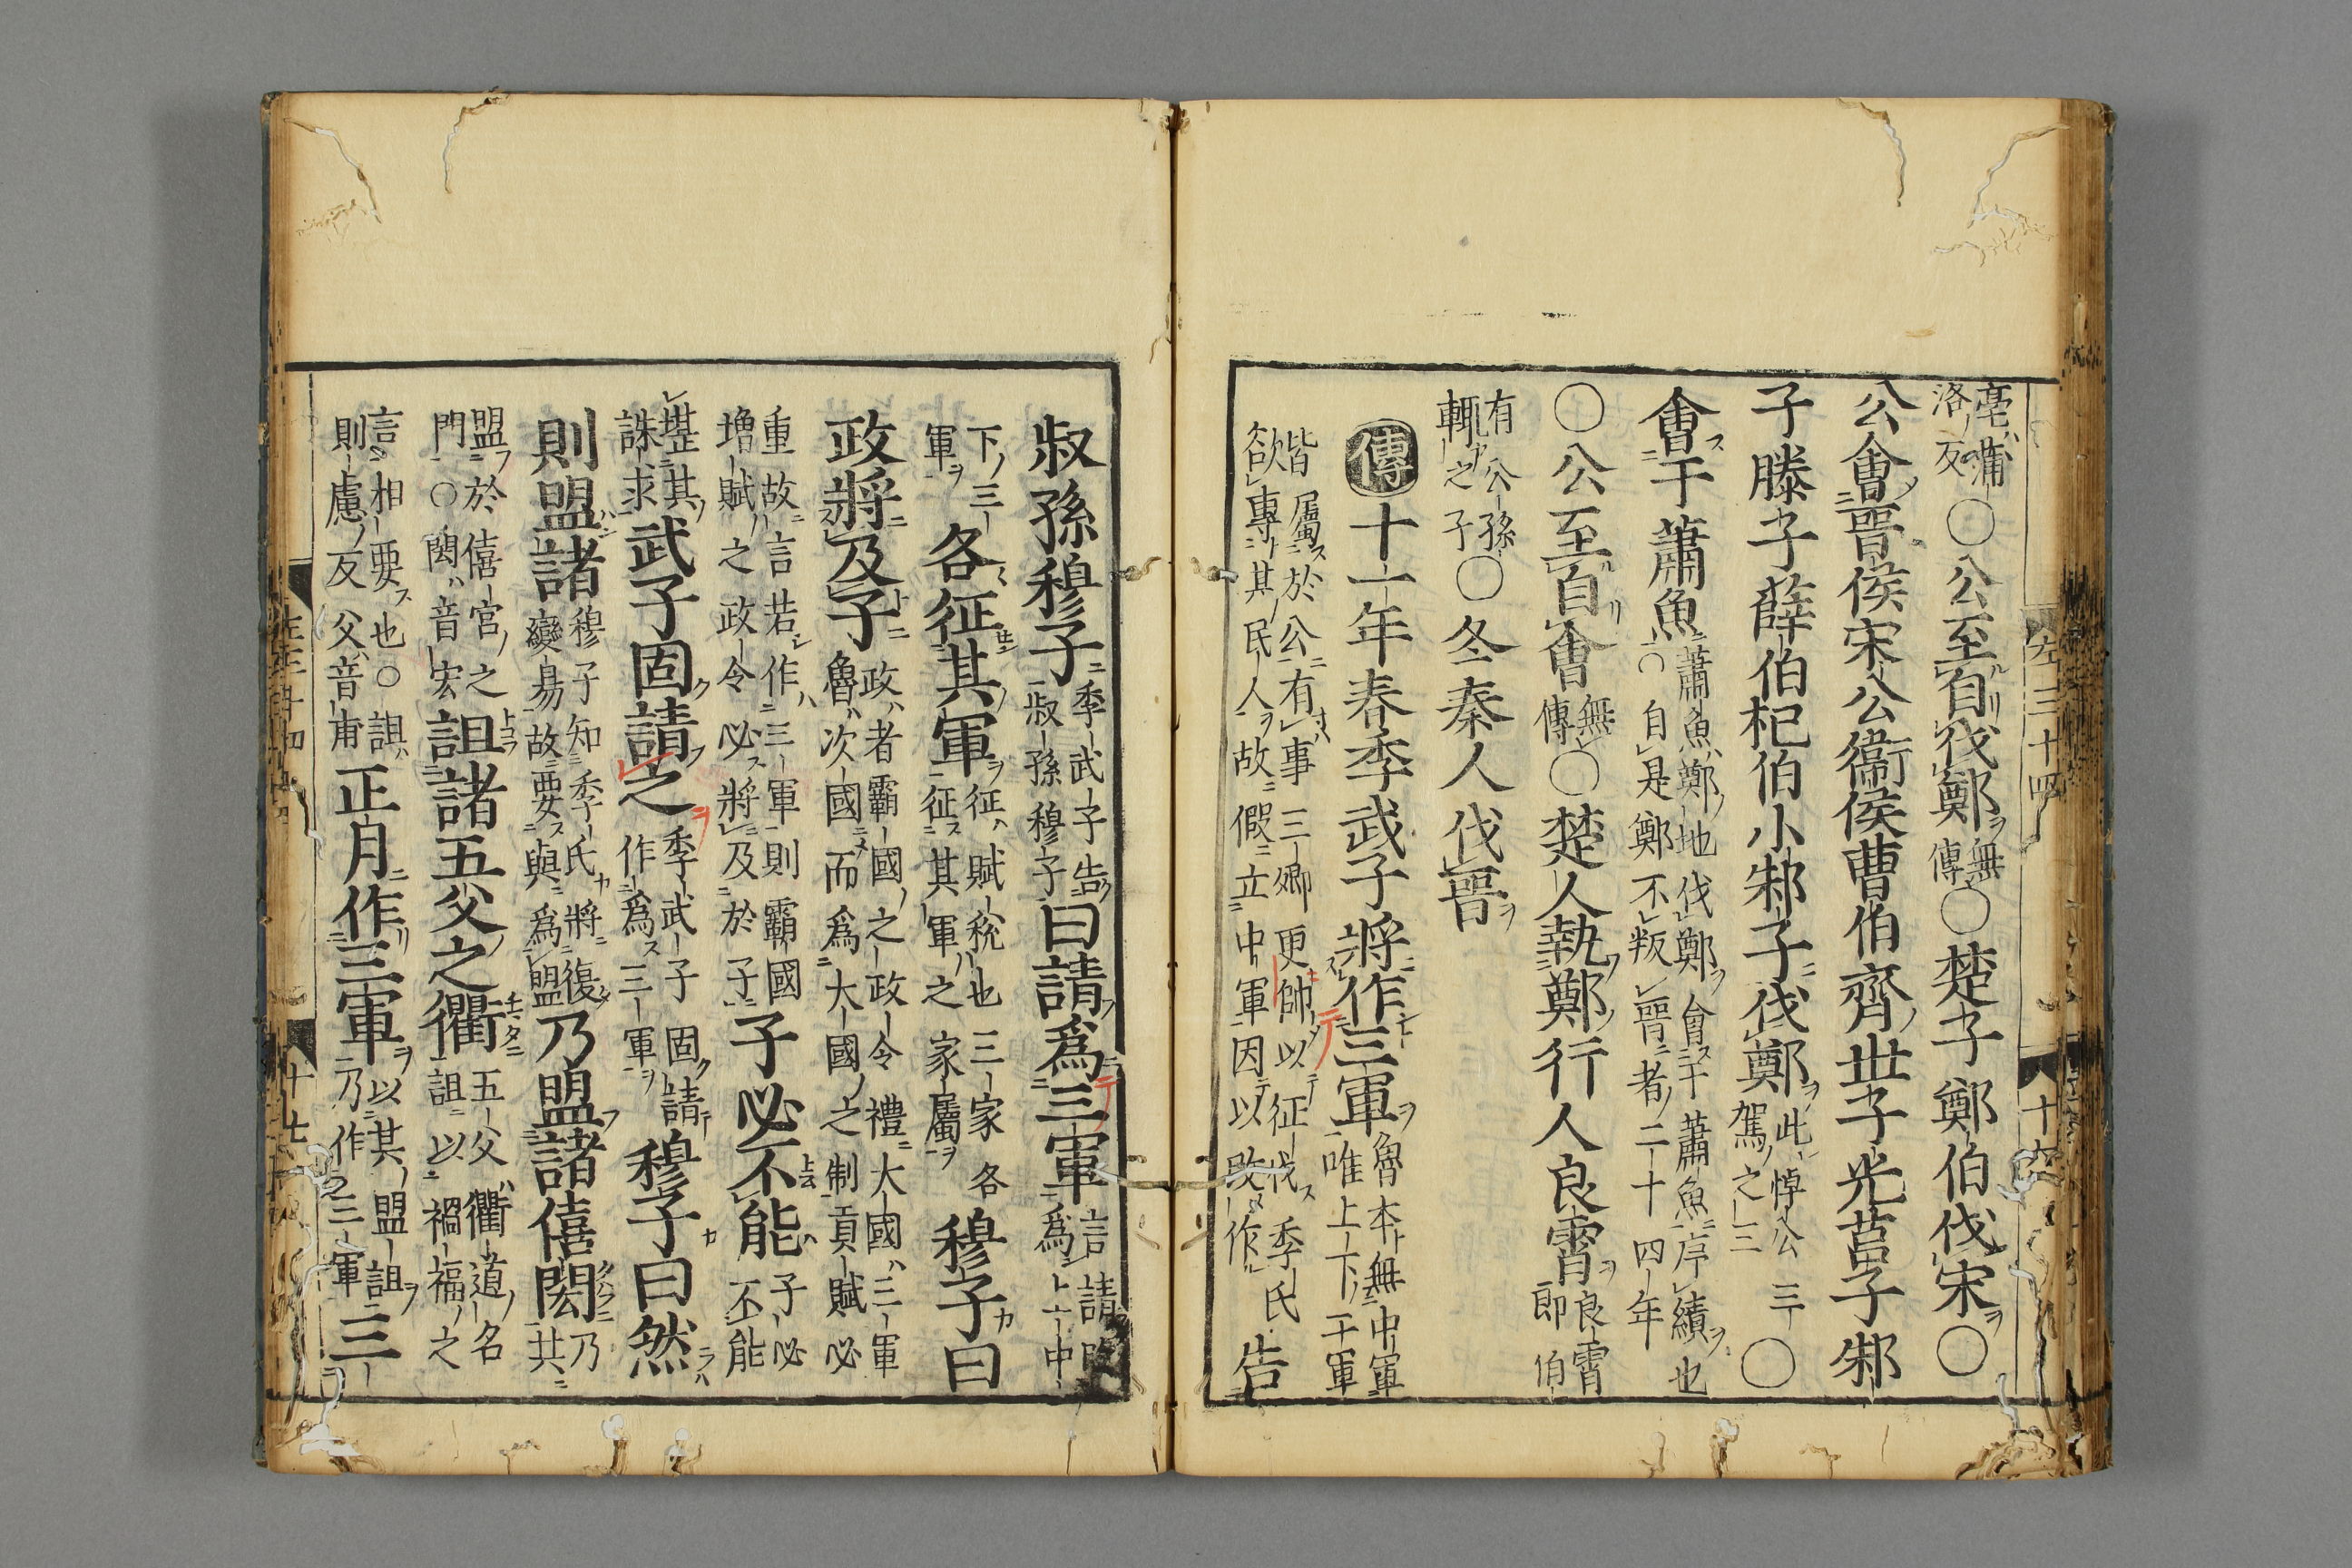 亳蒲洛反〇公至自伐鄭無傳〇楚子鄭伯伐宋〇
公會晉侯宋公衞侯曹伯齊世子光莒子邾
子滕子薛伯杞伯小邾子伐鄭此悼公三駕之三〇
會于蕭魚蕭魚鄭地伐鄭會于蕭魚序績也〇自是鄭不叛晉者二十四年
〇公至自會無傳〇楚人執鄭行人良霄良霄即伯
有公孫輒之子〇冬秦人伐晉
傳十一年春季武子將作三軍魯本無中軍唯上下二軍
皆屬於公有事三卿更帥以征伐季氏欲專其民人故假立中軍因以改作告
叔孫穆子季武子告叔孫穆子曰請爲三軍言請改爲上中
下三軍各征其軍征賦稅也三家各征其軍之家屬穆子曰
政將及子政者霸國之政令禮大國三軍魯次國而爲大國之制貢賦必
重故言若作三軍則霸國增賦之政令必將及於子子必不能子必不能
堪其誅求武子固請之季武子固請作爲三軍穆子曰然
則盟諸穆子知季氏將復變易故要與爲盟乃盟諸僖閎乃共
盟於僖宮之門〇閎音宏詛諸五父之衢五父衢道名詛以禍福之
言相要也〇詛則慮反父音甫正月作三軍以其盟詛乃作三軍三
左三十四
十六
十七